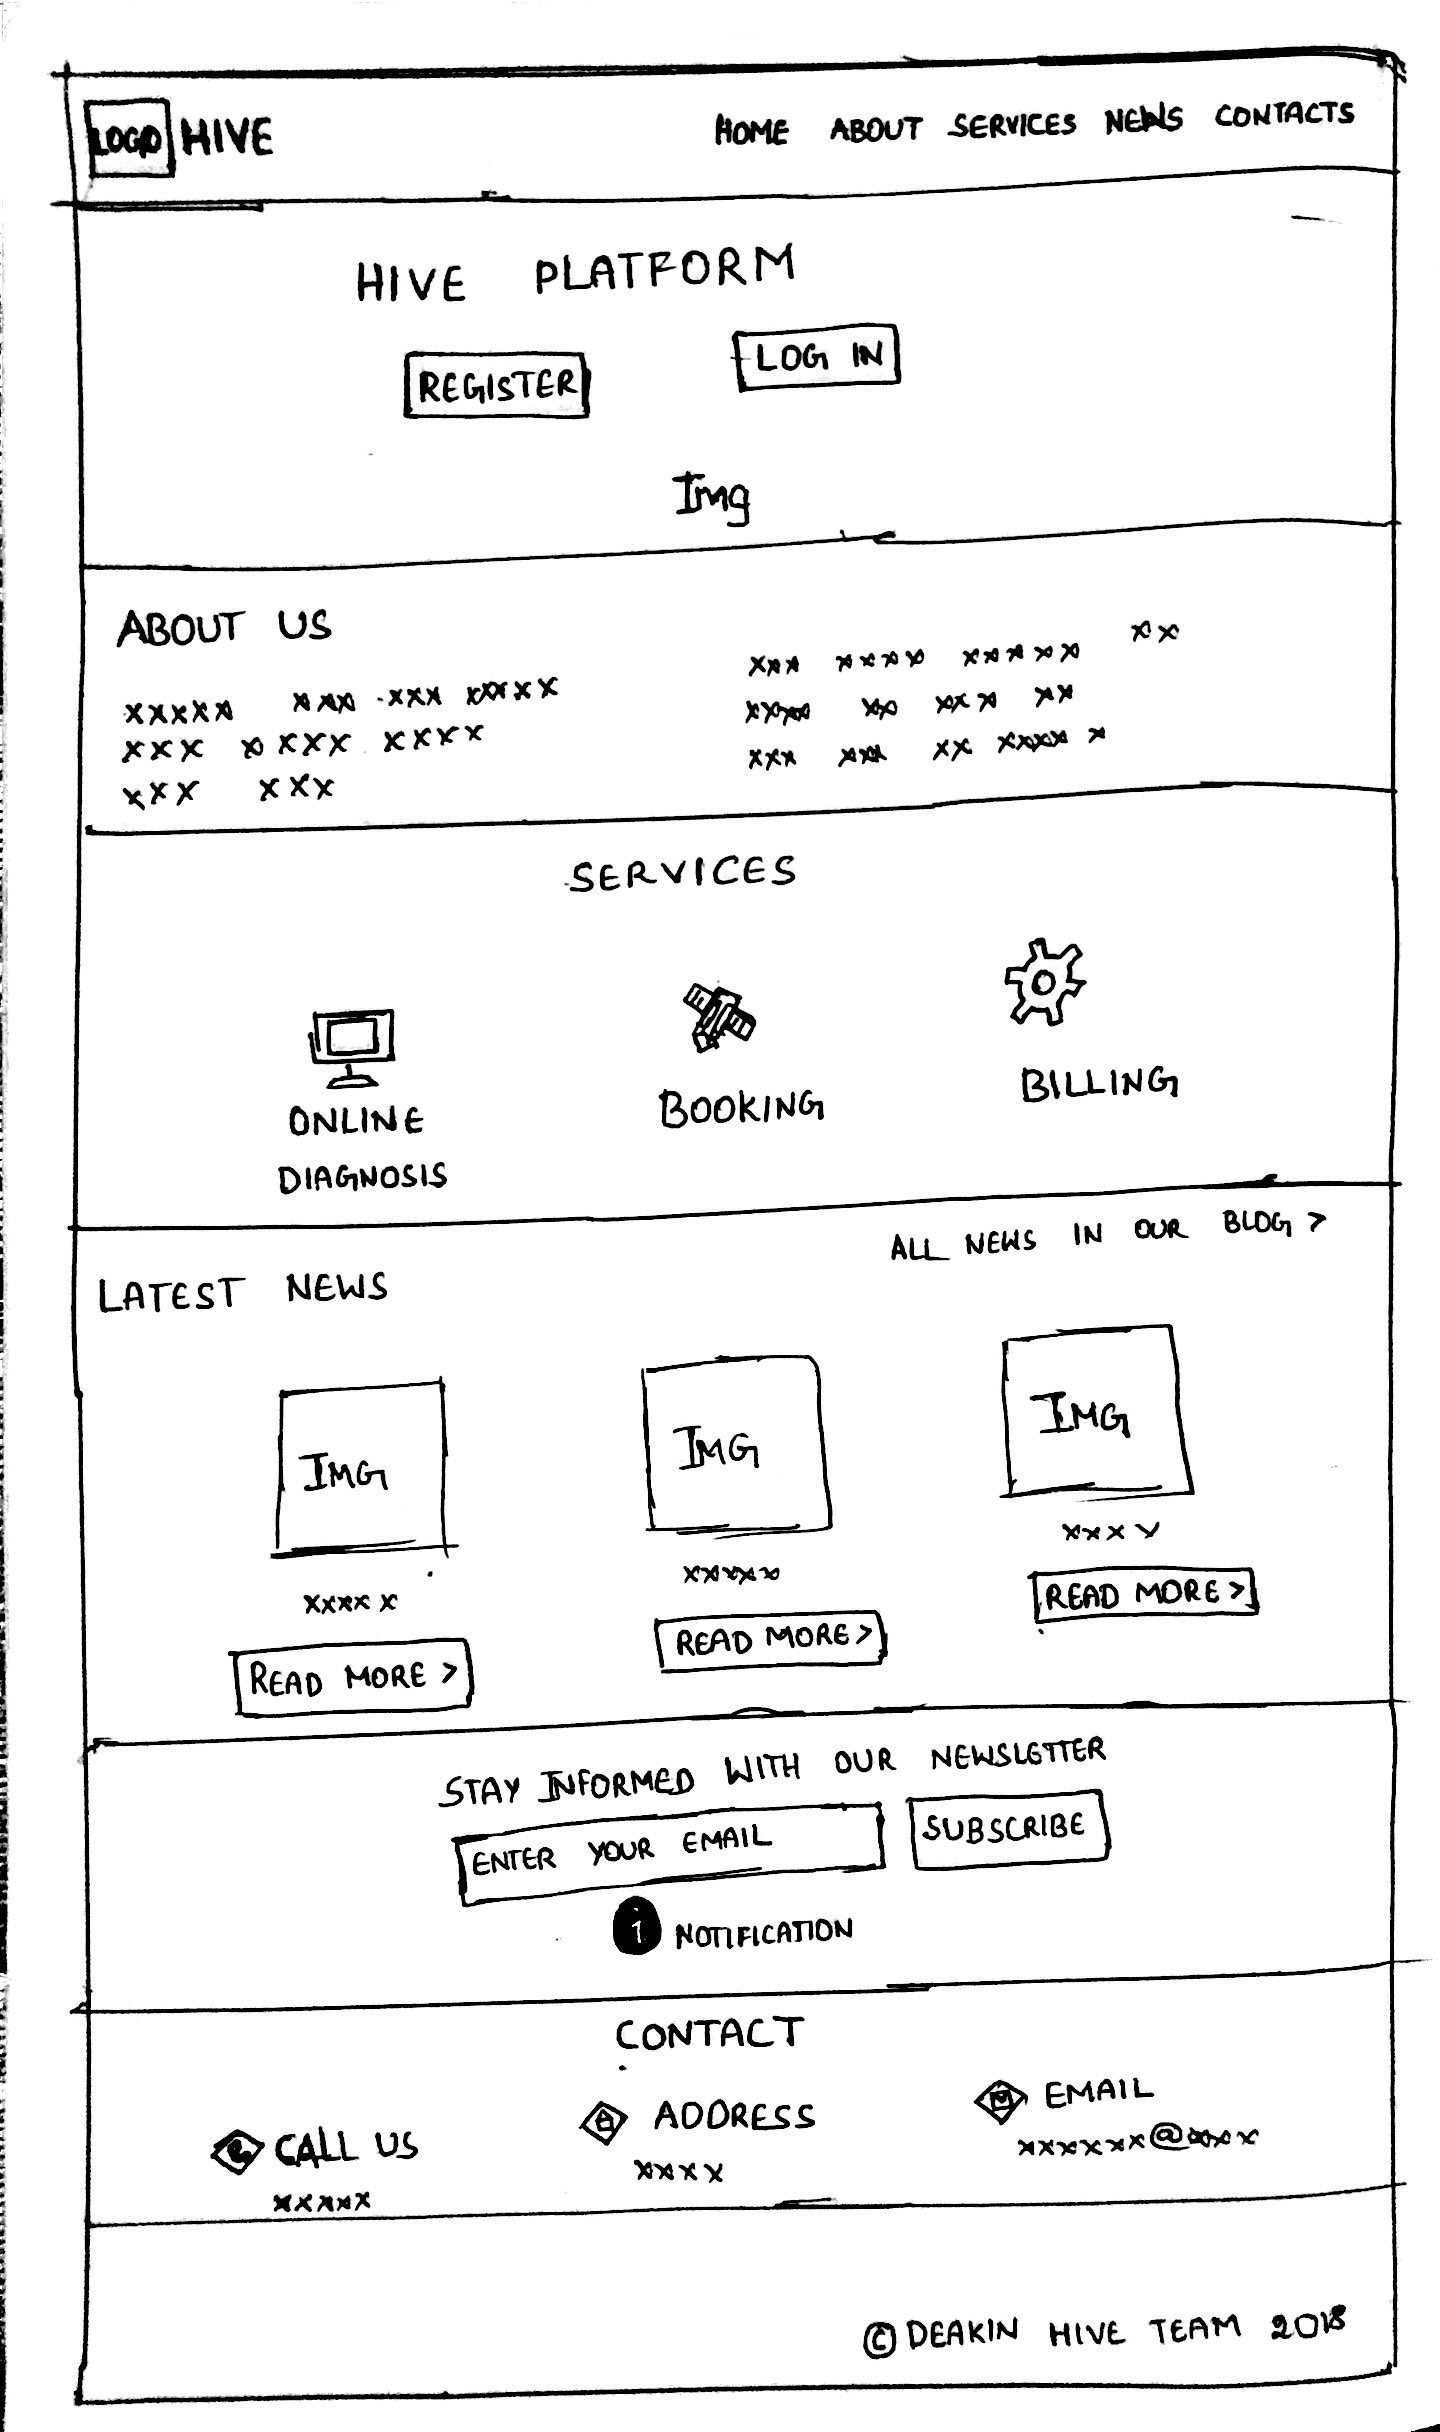 LOGO HIVE HOME ABOUT SERVICES NEWS CONTACTS
HIVE PLATFORM
REGISTER LOG IN
Img
ABOUT US
xxxxx xxx xxx xxxxx
xxx x xxx xxxx
xxx xxx
xxx xxxx xxxxx xx
xxxx xx xxx xx
xxx xxx xx xxxx x
SERVICES
ONLINE
DIAGNOSIS
BOOKING
BILLING
ALL NEWS IN OUR BLOG >
LATEST NEWS
IMG IMG IMG
xxxxx xxxxx xxxx
READ MORE > READ MORE > READ MORE >
STAY INFORMED WITH OUR NEWSLETTER
ENTER YOUR EMAIL SUBSCRIBE
1 NOTIFICATION
CONTACT
CALL US
xxxxx
ADDRESS
xxxx
EMAIL
xxxxxx@xxxx
© DEAKIN HIVE TEAM 2018